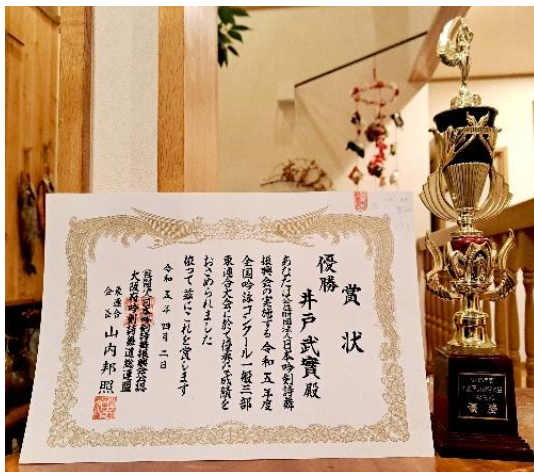 賞状
優勝
井戸武實殿
あなたは公益財団法人日本吟剣詩舞
振興会の実施する令和五年度
全国吟詠コンクール一般三部
東連合大会に於て優秀な成績を
おさめられました
依って茲にこれを賞します
令和五年四月二日
公益財団法人日本吟剣詩舞振興会公認
大阪府吟剣詩舞道総連盟
東連合
会長 山内邦照
優勝